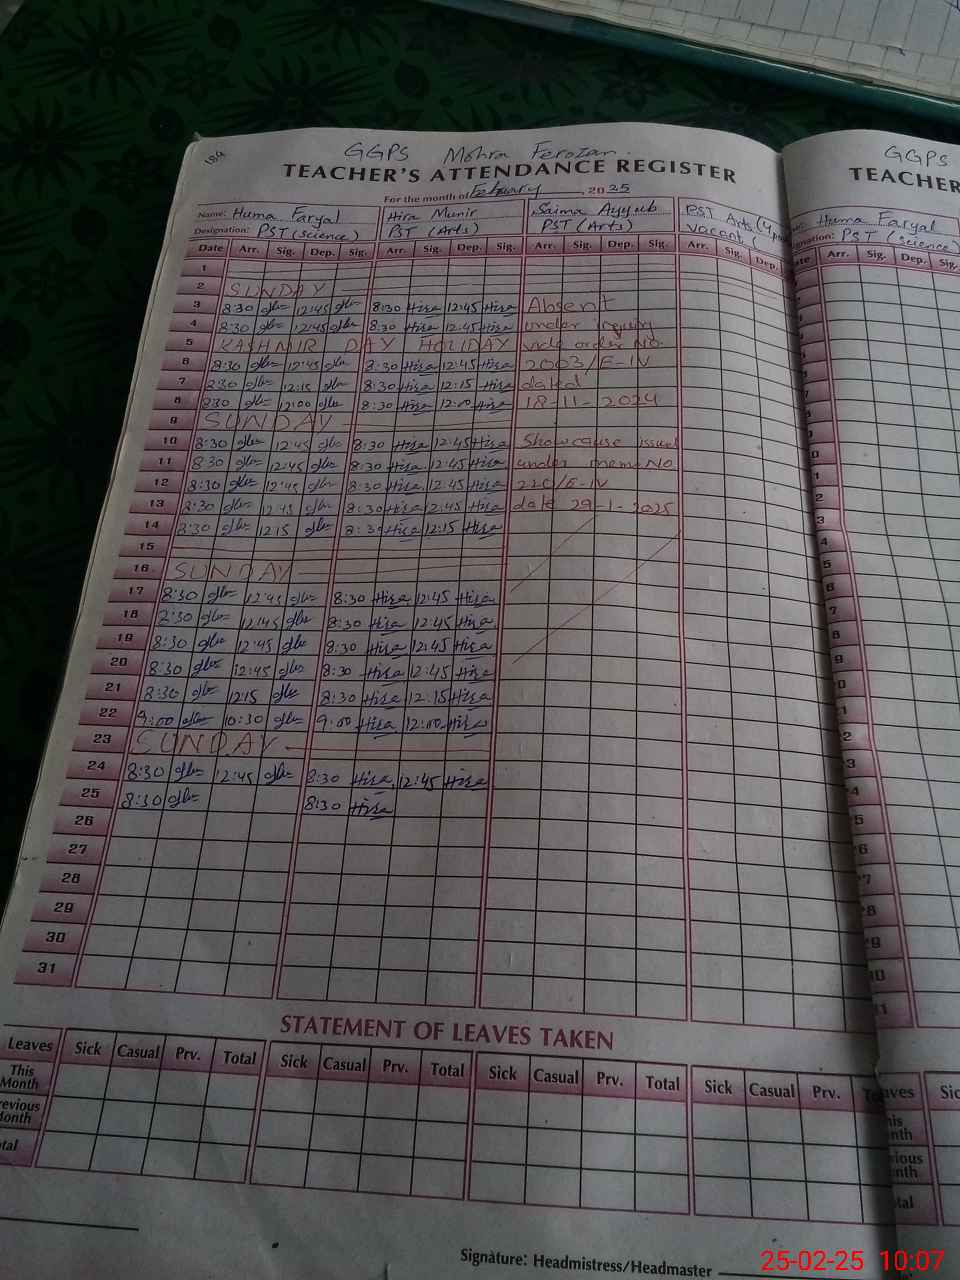 GGPS Mohra Ferozan
TEACHER'S ATTENDANCE REGISTER
For the month of February, 2025
Name: Huma Faryal Hira Munir Saima Ayyub PST Arts
Designation: PST (Science) PST (Arts) PST (Arts) Vacant
Date Arr. Sig. Dep. Sig. Arr. Sig. Dep. Sig. Arr. Sig. Dep. Sig. Arr. Sig. Dep.
1
2 SUNDAY
3 8:30 12:45 8:30 Hira 12:45 Hira Absent
4 8:30 12:45 8:30 Hira 12:45 Hira under inquiry
5 KASHMIR DAY HOLIDAY vide order No.
6 8:30 12:45 8:30 Hira 12:45 Hira 2003/E-IV
7 8:30 12:15 8:30 Hira 12:15 Hira dated
8 8:30 12:00 8:30 Hira 12:00 Hira 18-11-2024
9 SUNDAY
10 8:30 12:45 8:30 Hira 12:45 Hira Showcause issued
11 8:30 12:45 8:30 Hira 12:45 Hira under mem No
12 8:30 12:45 8:30 Hira 12:45 Hira 220/E-IV
13 8:30 12:45 8:30 Hira 12:45 Hira date 29-1-2025
14 8:30 12:15 8:30 Hira 12:15 Hira
15
16 SUNDAY
17 8:30 12:45 8:30 Hira 12:45 Hira
18 8:30 12:45 8:30 Hira 12:45 Hira
19 8:30 12:45 8:30 Hira 12:45 Hira
20 8:30 12:45 8:30 Hira 12:45 Hira
21 8:30 12:15 8:30 Hira 12:15 Hira
22 9:00 10:30 9:00 Hira 12:00 Hira
23 SUNDAY
24 8:30 12:45 8:30 Hira 12:45 Hira
25 8:30 8:30 Hira
26
27
28
29
30
31
STATEMENT OF LEAVES TAKEN
Leaves Sick Casual Prv. Total Sick Casual Prv. Total Sick Casual Prv. Total Sick Casual Prv.
This Month
Previous Month
Total
Signature: Headmistress/Headmaster
GGPS
TEACHER
Huma Faryal
Designation: PST (Science)
Date Arr. Sig. Dep. Sig.
25-02-25 10:07